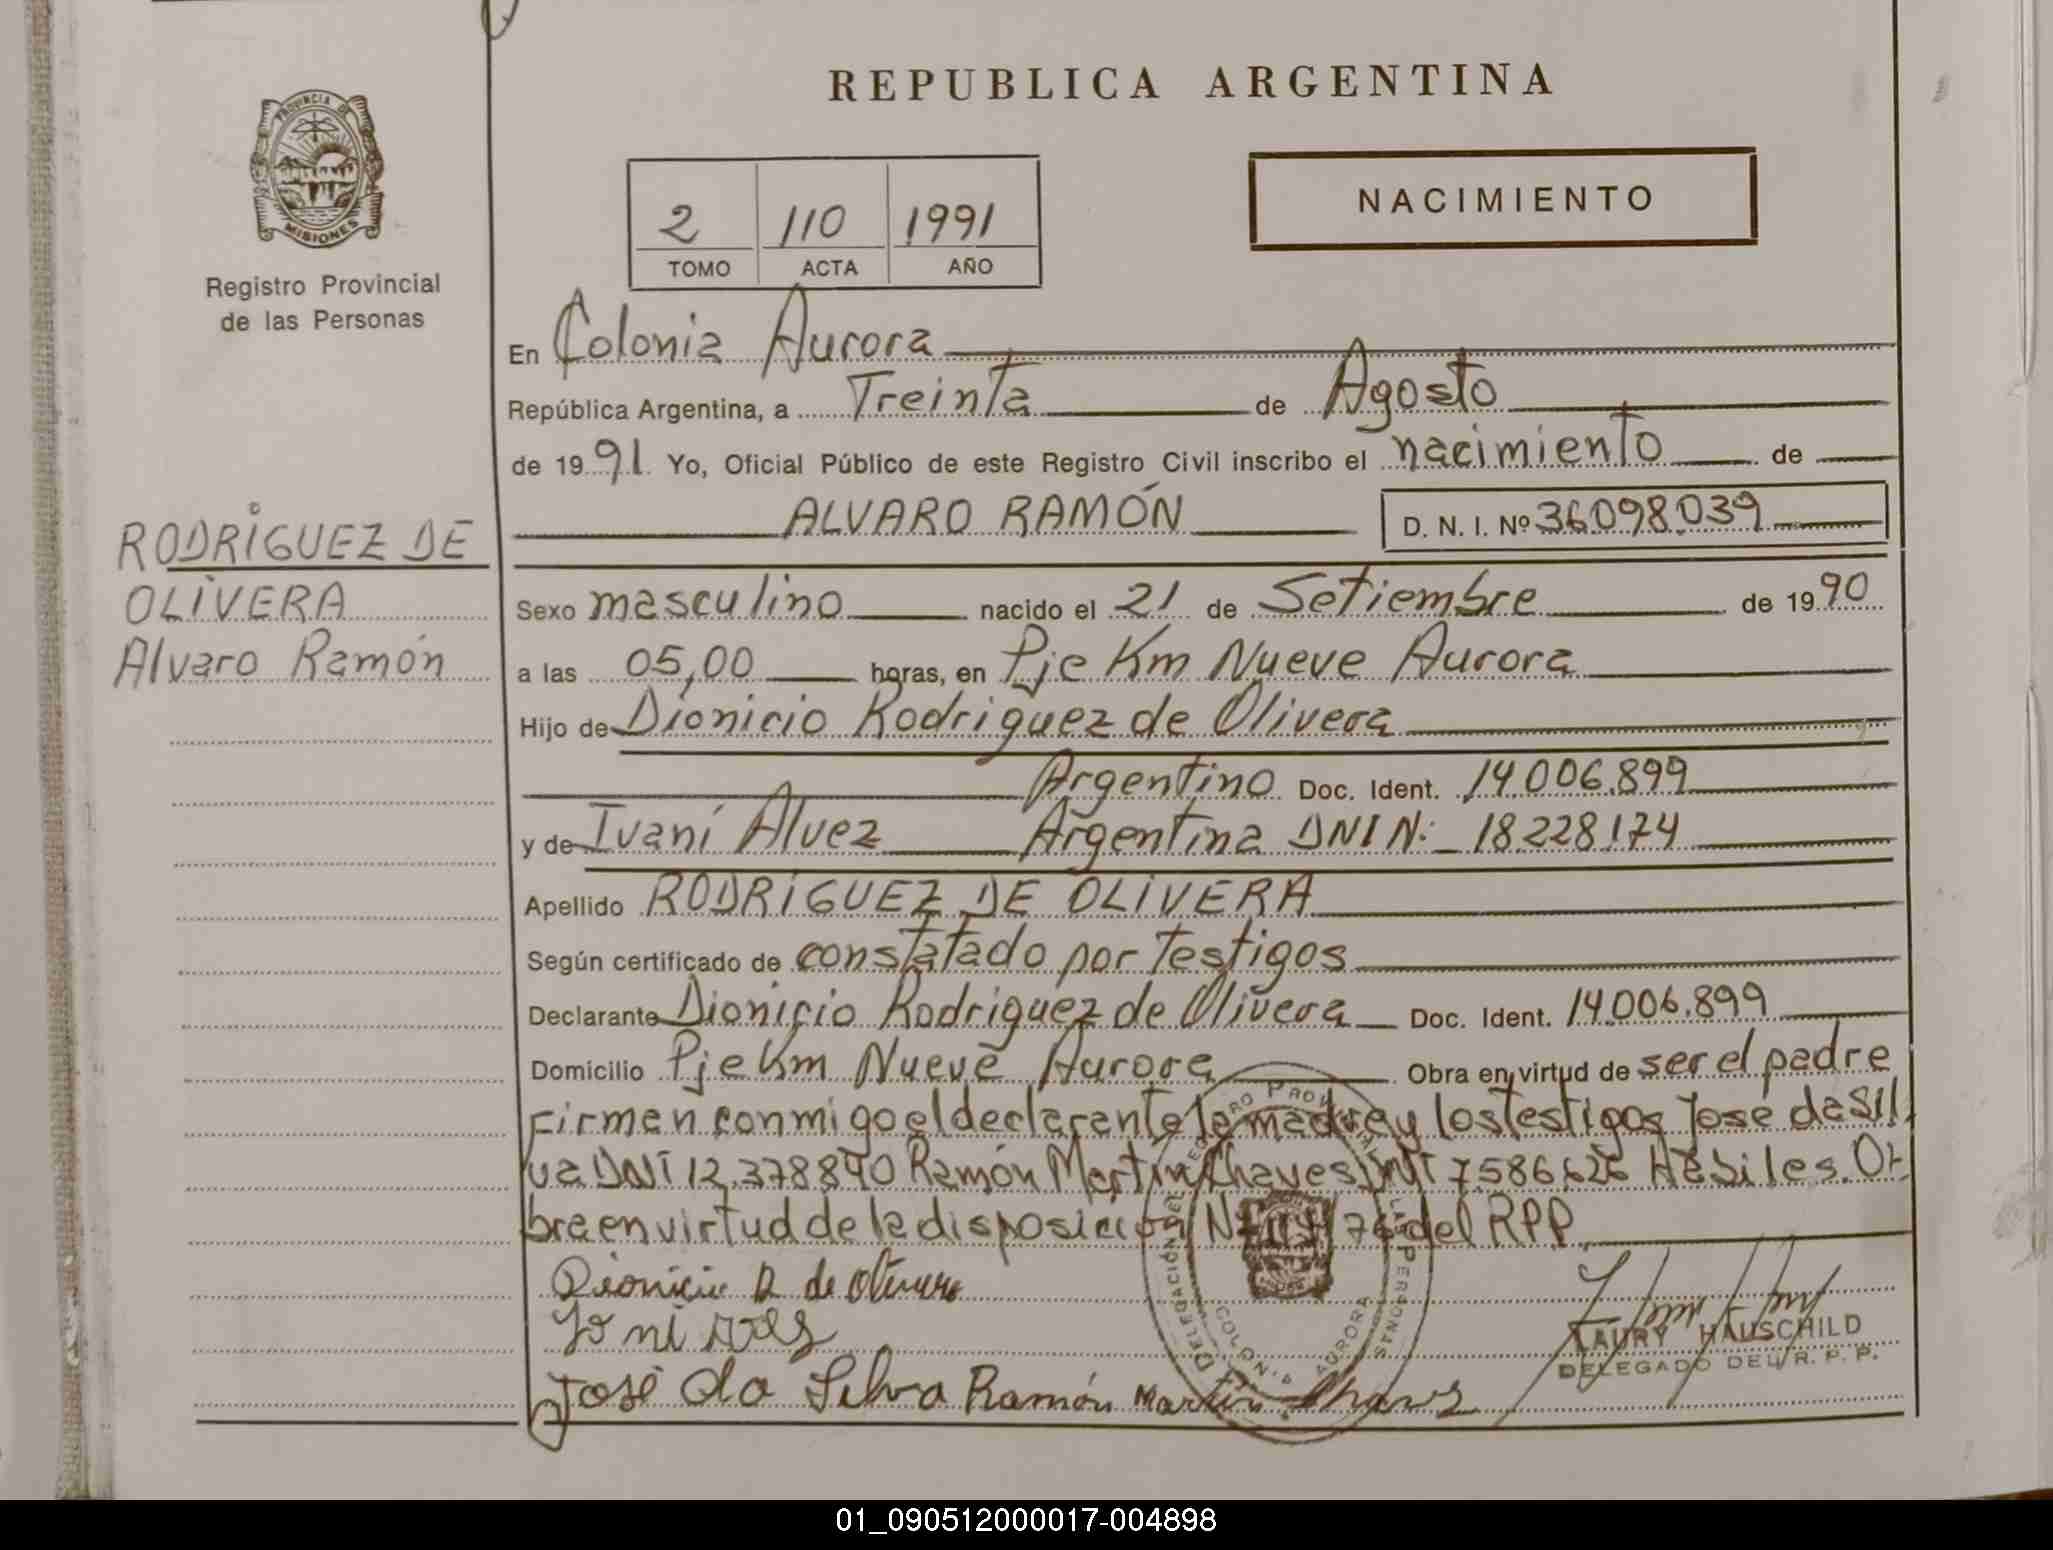 REPUBLICA ARGENTINA
PROVINCIA DE
MISIONES
Registro Provincial
de las Personas
NACIMIENTO
2 110 1991
TOMO ACTA AÑO
En Colonia Aurora
República Argentina, a Treinta de Agosto
de 1991 Yo, Oficial Público de este Registro Civil inscribo el nacimiento de
ALVARO RAMÓN D. N. I. Nº 36098.039
RODRIGUEZ DE
OLIVERA
Alvaro Ramón
Sexo masculino nacido el 21 de Setiembre de 1990
a las 05,00 horas, en Pje Km Nueve Aurora
Hijo de Dionicio Rodriguez de Olivera
Argentino Doc. Ident. 14.006.899
y de Ivaní Alvez Argentina DNI N: 18.228.174
Apellido RODRIGUEZ DE OLIVERA
Según certificado de constatado por Testigos
Declarante Dionicio Rodriguez de Olivera Doc. Ident. 14.006.899
Domicilio Pje Km Nueve Aurora Obra en virtud de ser el padre
Firman conmigo el declarante la madre y los testigos José da Sil
va DNI 12.378.890 Ramón Martin Chaves DNI 7.586.626 Hábiles. O
bra en virtud de la disposición del RPP
Dionicio R de Olivera
José da Silva Ramón Martin Chaves
LAURY HAUSCHILD
DELEGADO DEL R. P. P.
DELEGACIÓN DEL REGISTRO PROVINCIAL DE LAS PERSONAS
COLONIA AURORA
01_090512000017-004898